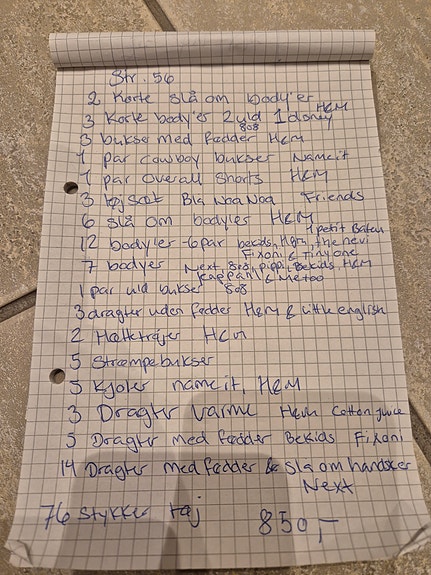 Str. 56
2 Korte slå om body'er
3 Korte body'er 2 uld 1 disney H&M
808
3 bukse med fødder H&M
1 par cowboy bukser Nameit
1 par overall shorts H&M
3 tøjsæt Bla Noa Noa Friends
6 slå om bodyer H&M
12 bodyer -6 par bekids, H&M, the nevi
1 petit Bateu
Fixoni & Tinyone
7 bodyer Next, 808, pippi, Bekids H&M
Kappahl & Metoo
1 par uld bukser 808
3 dragter uden fødder H&M & little english
2 Hættetrøjer H&M
5 Strømpebukser
5 Kjoler nameit, H&M
3 Dragter Varme H&M Cotton juice
5 Dragter med fødder Bekids Fixoni
14 Dragter med fødder & slå om handsker
Next
76 stykker tøj 850,-